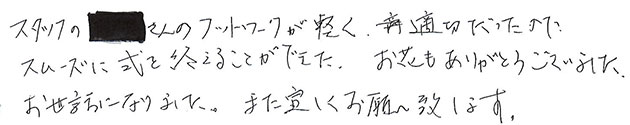 スタッフの さんのフットワークが軽く、適切だった
スムーズに式を終えることができた。 お花もありがとうございました。
お世話になりました。 また宜しくお願い致します。